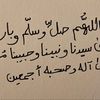 اللهم صل وسلم وبارك
على سيدنا ونبينا وحبيبنا
آله وصحبه أجمعين